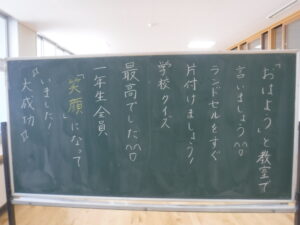 「おはよう」と教室で
言いましょう^^
ランドセルをすぐ
片付けましょう!
学校クイズ
最高でした^^
一年生全員
「笑顔」になって
いました!
大成功